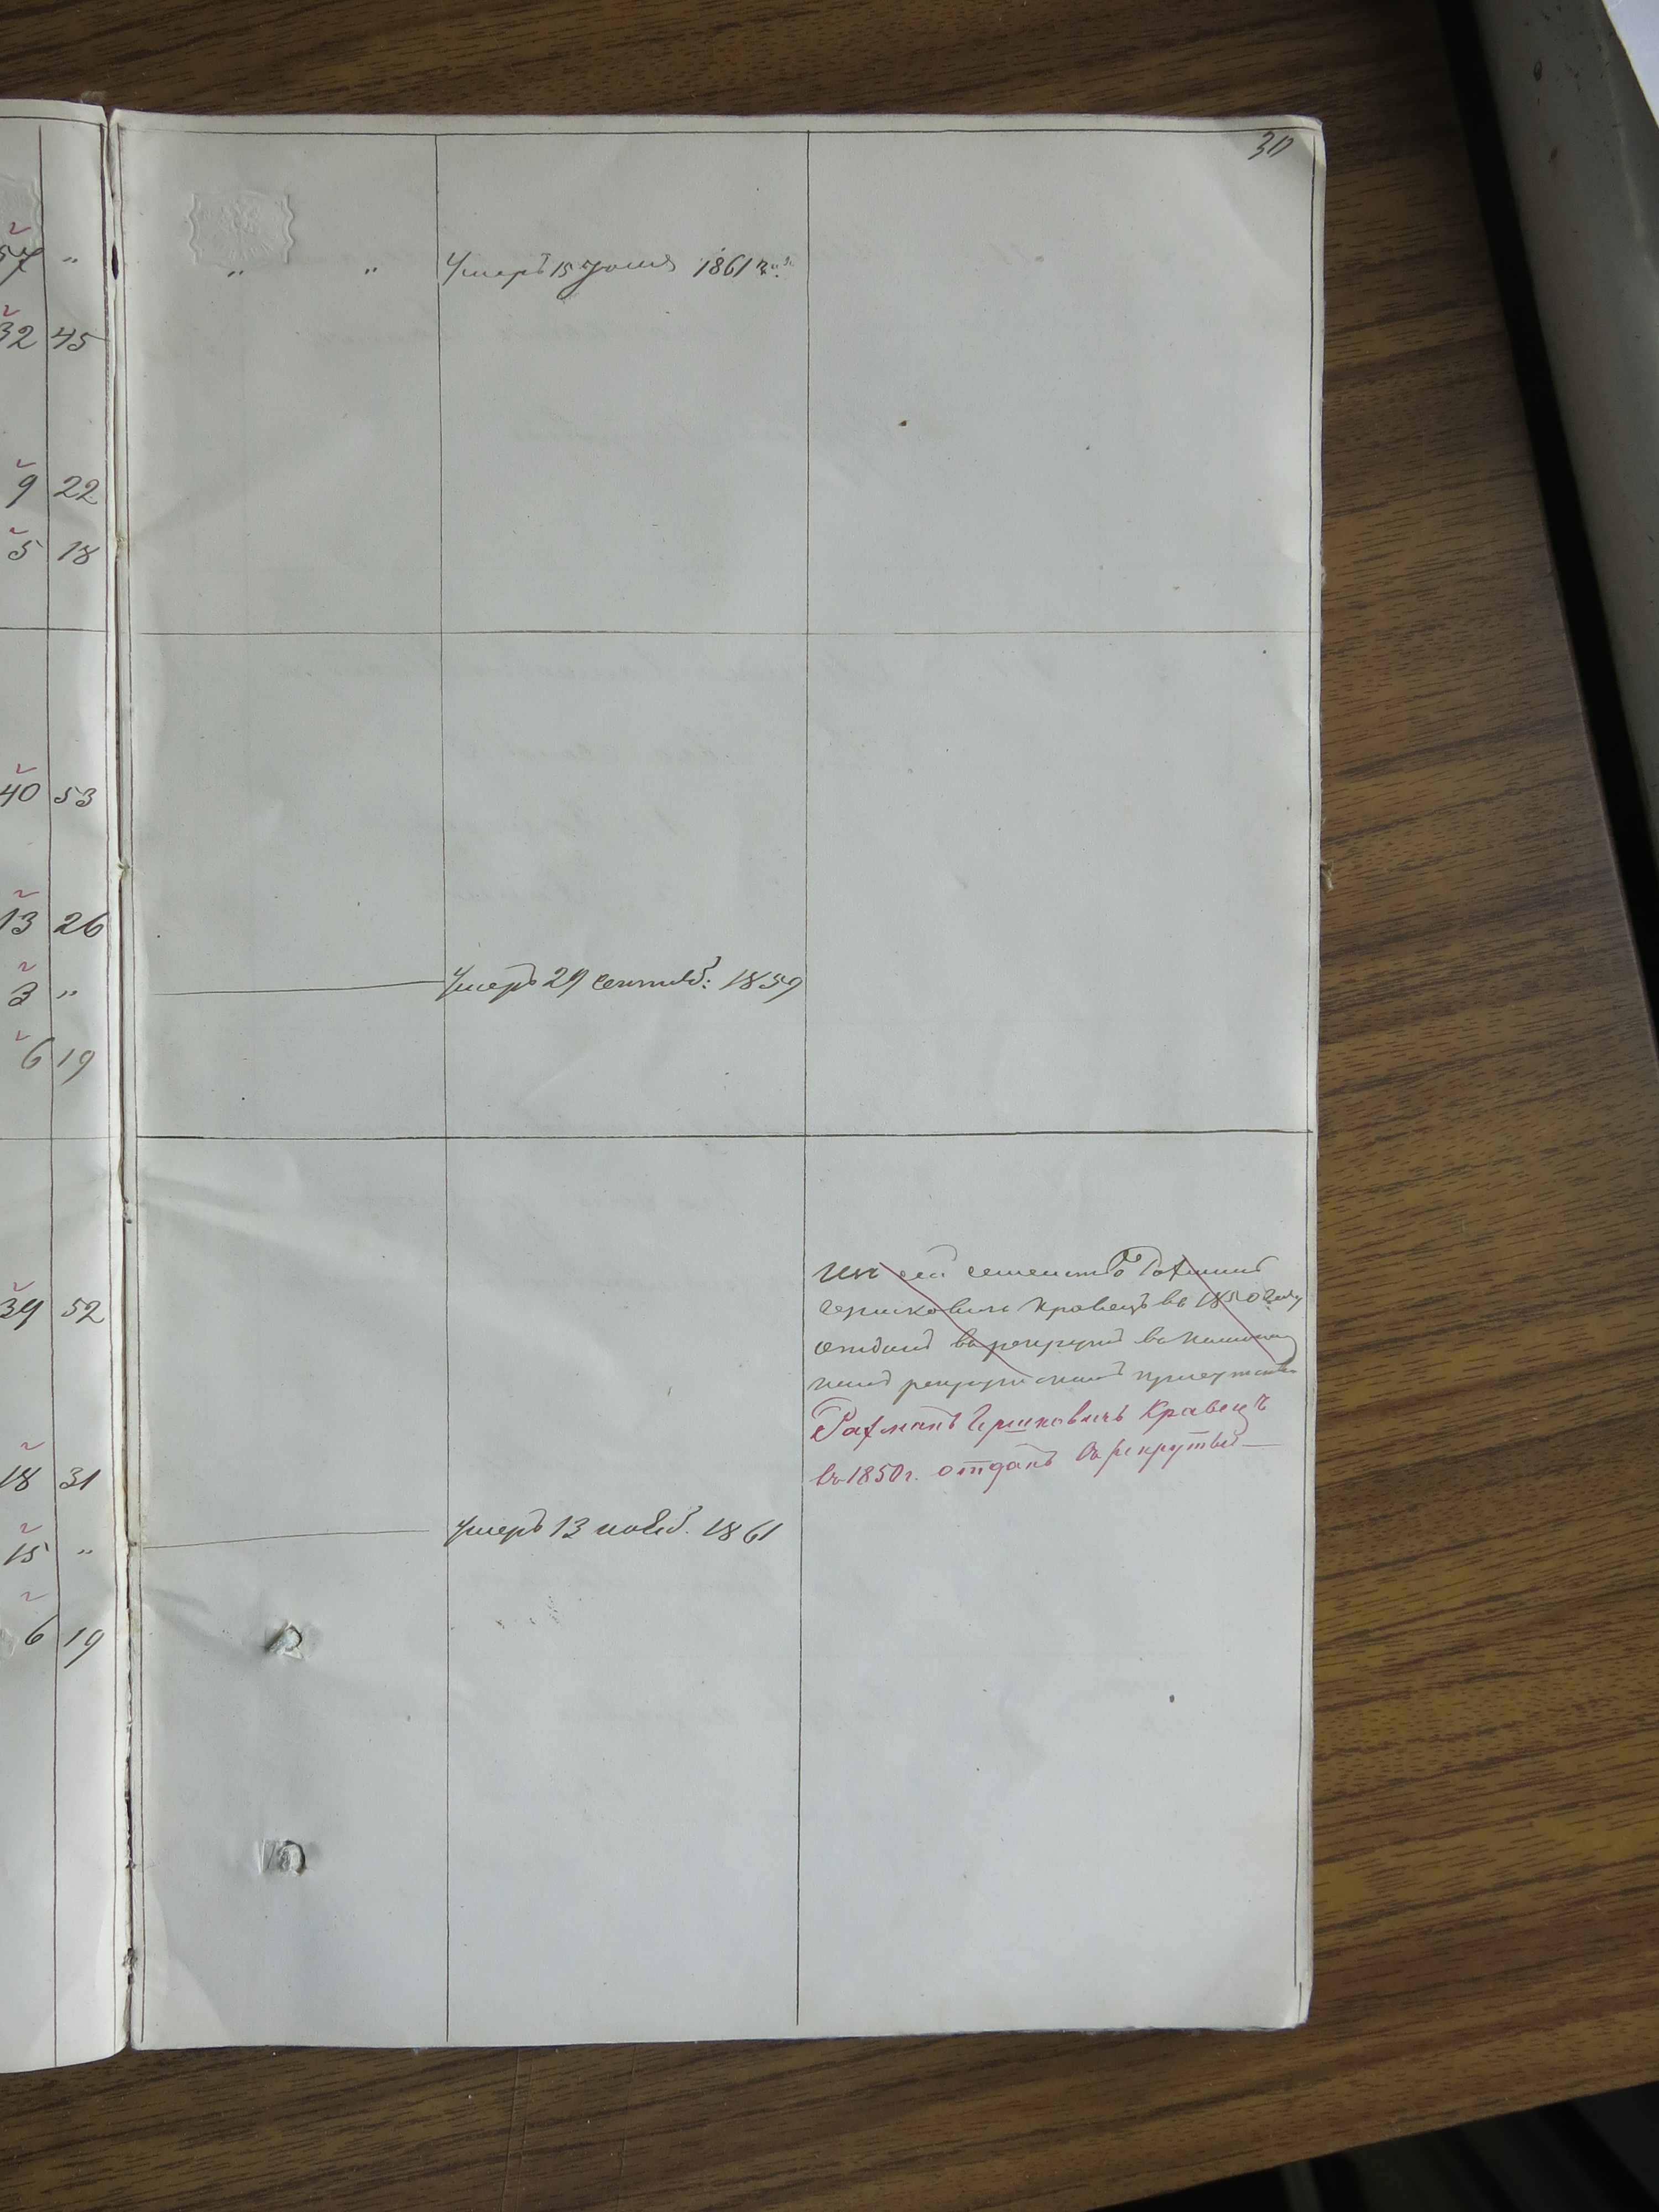 30
57 "
" " Умеръ 15 Юлия 1861 го:
32 45
9 22
5 18
40 53
13 26
3 " Умеръ 29 сентяб: 1859
6 19
Изъ сего семейства Рахманъ
39 52 Гершковичъ Кравецъ въ 1850 году
отданъ въ рекруты въ
рекрутскомъ присутствіи
Рахманъ Гершковичъ Кравецъ
въ 1850 г. отданъ въ рекруты
18 31
15 " Умеръ 13 нояб. 1861
6 19